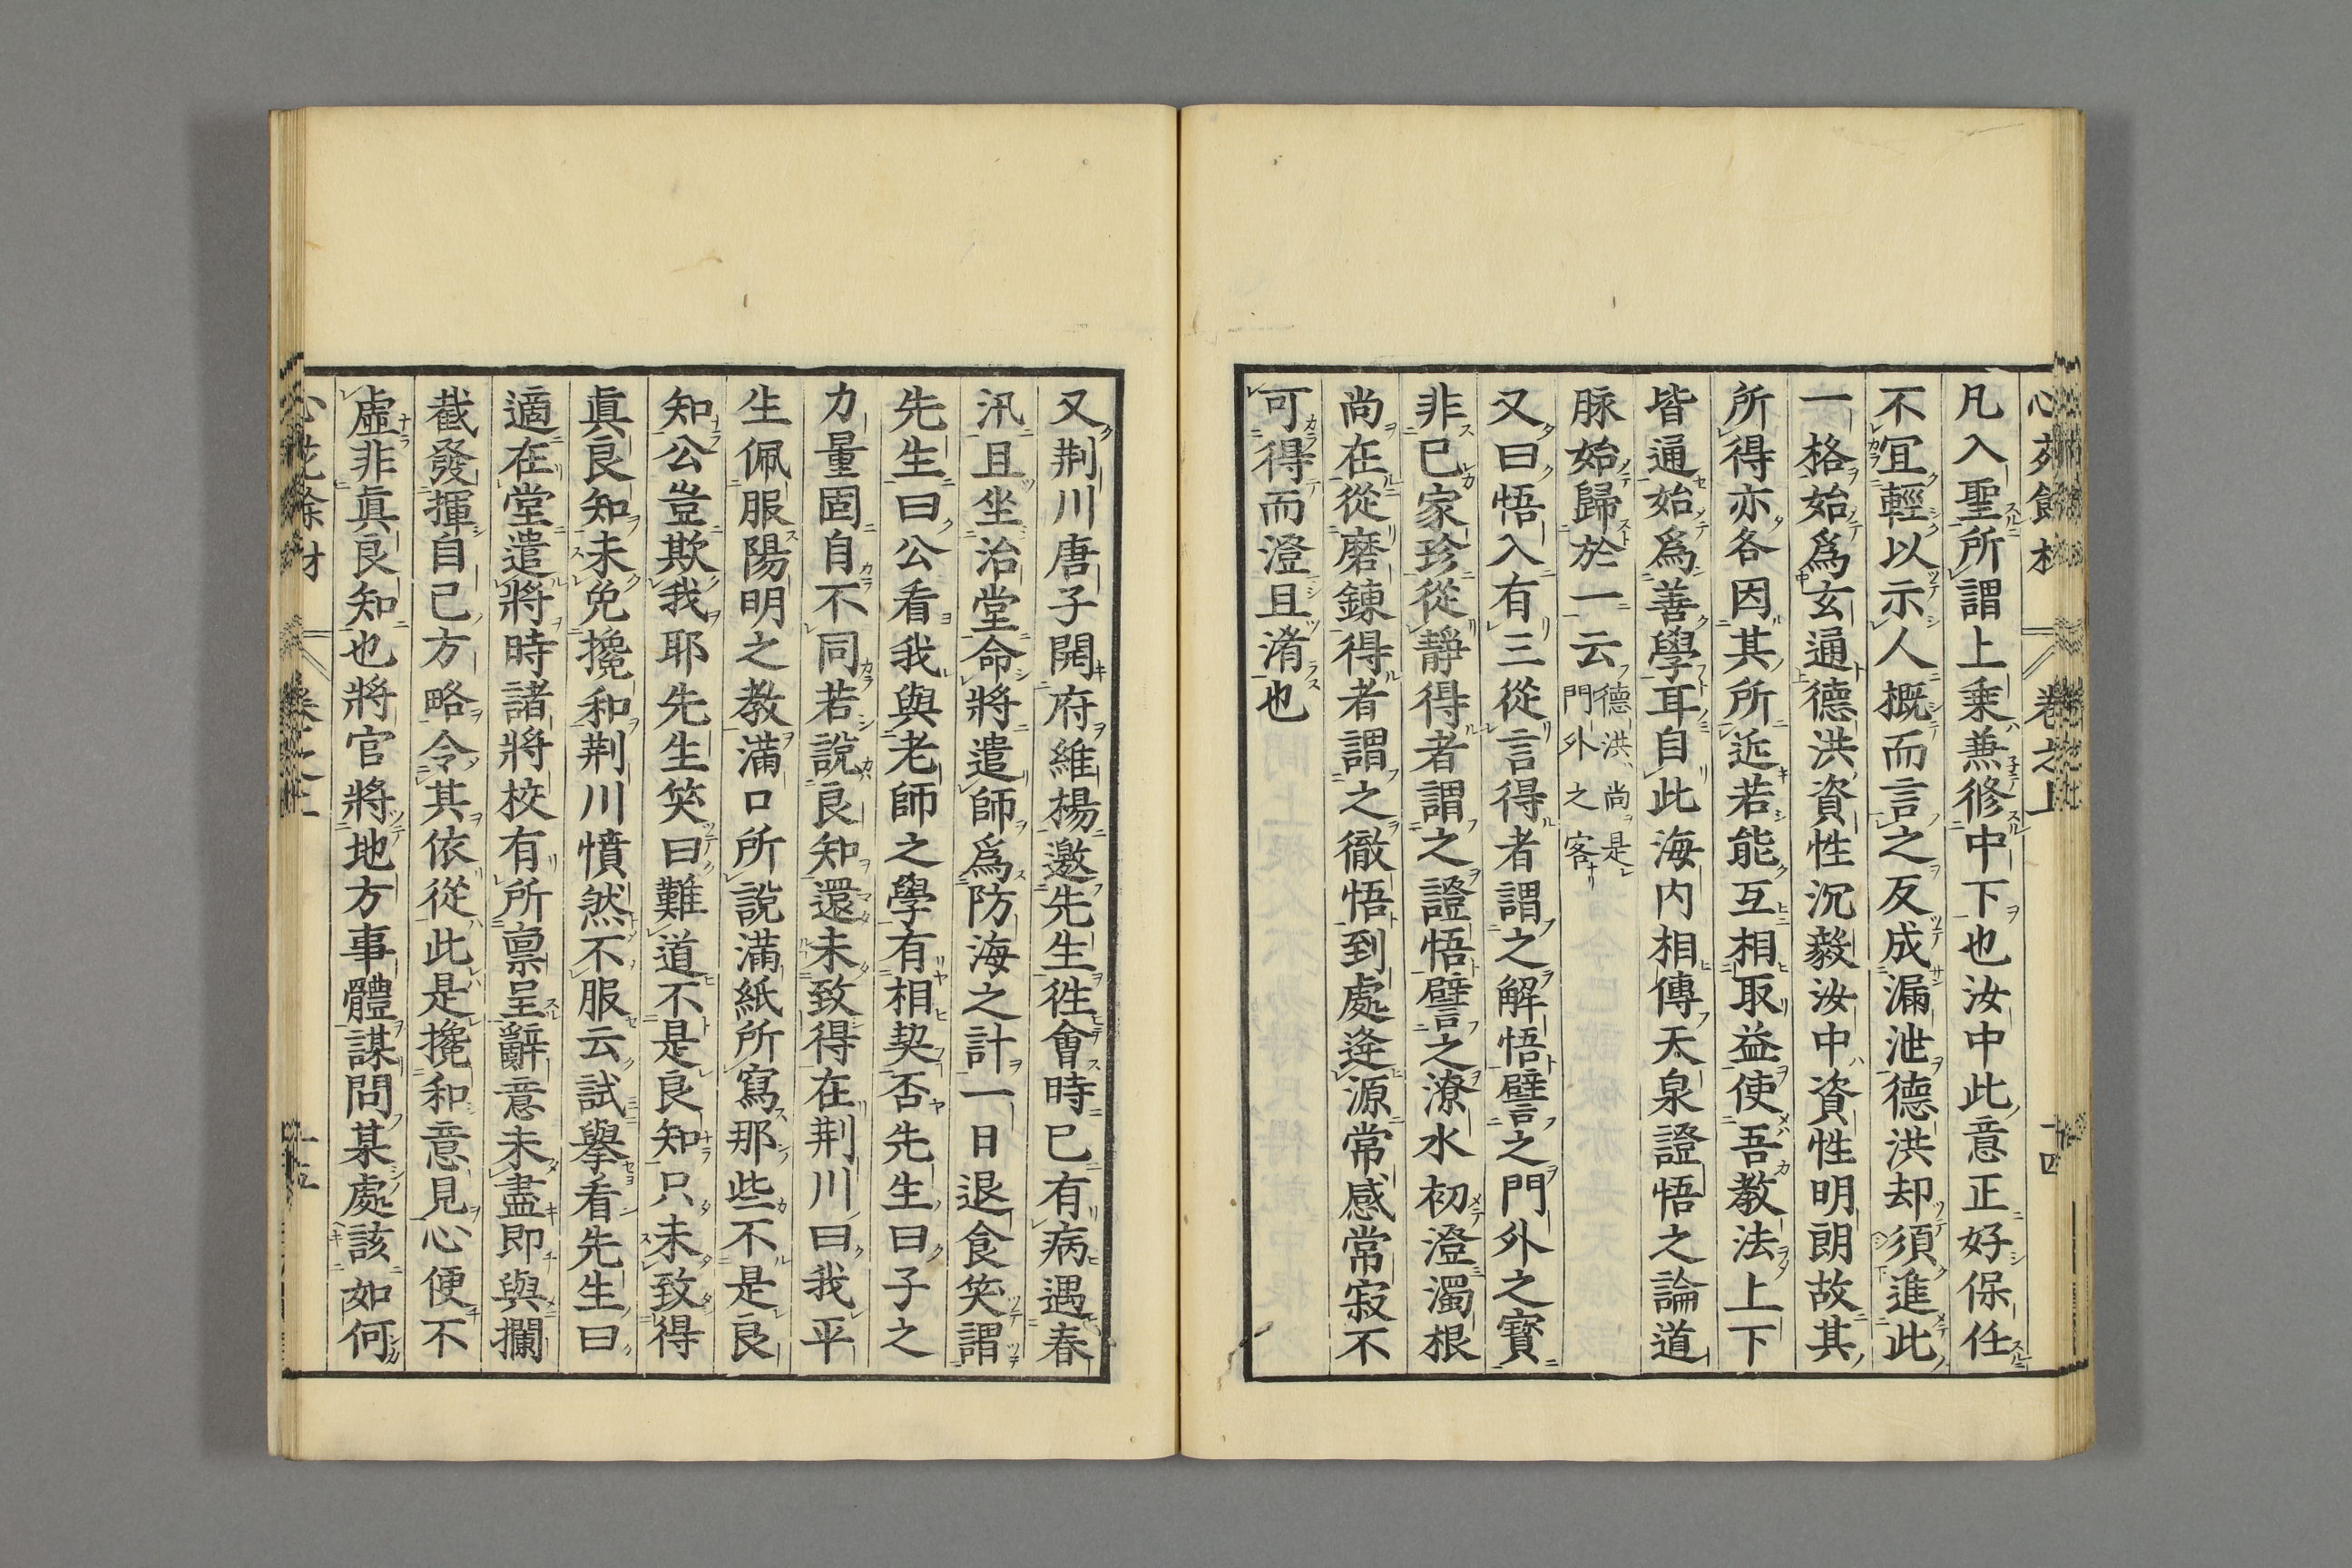 卷之上
凡入聖所謂上乘兼修中下也汝中此意正好保任
不宜輕以示人概而言之反成漏泄德洪却須進此
一格始爲玄通德洪資性沉毅汝中資性明朗故其
所得亦各因其所近若能互相取益使吾教法上下
皆通始爲善學耳自此海内相傳天泉證悟之論道
脉始歸於一云德洪尚是
門外之客
又曰悟入有三從言得者謂之解悟譬之門外之寶
非已家珍從靜得者謂之證悟譬之潦水初澄濁根
尚在從磨鍊得者謂之徹悟到處逢源常感常寂不
可得而澄且淆也
又荆川唐子開府維揚邀先生徃會時已有病遇春
汛且坐治堂命將遣師爲防海之計一日退食笑謂
先生曰公看我與老師之學有相契否先生曰子之
力量固自不同若說良知還未致得在荆川曰我平
生佩服陽明之教滿口所說滿紙所寫那些不是良
知公豈欺我耶先生笑曰難道不是良知只未致得
眞良知未免攙和荆川憤然不服云試擧看先生曰
適在堂遣將時諸將校有所禀呈辭意未盡即與攔
截發揮自己方略令其依從此是攙和意見心便不
虛非眞良知也將官將地方事體謀問某處該如何